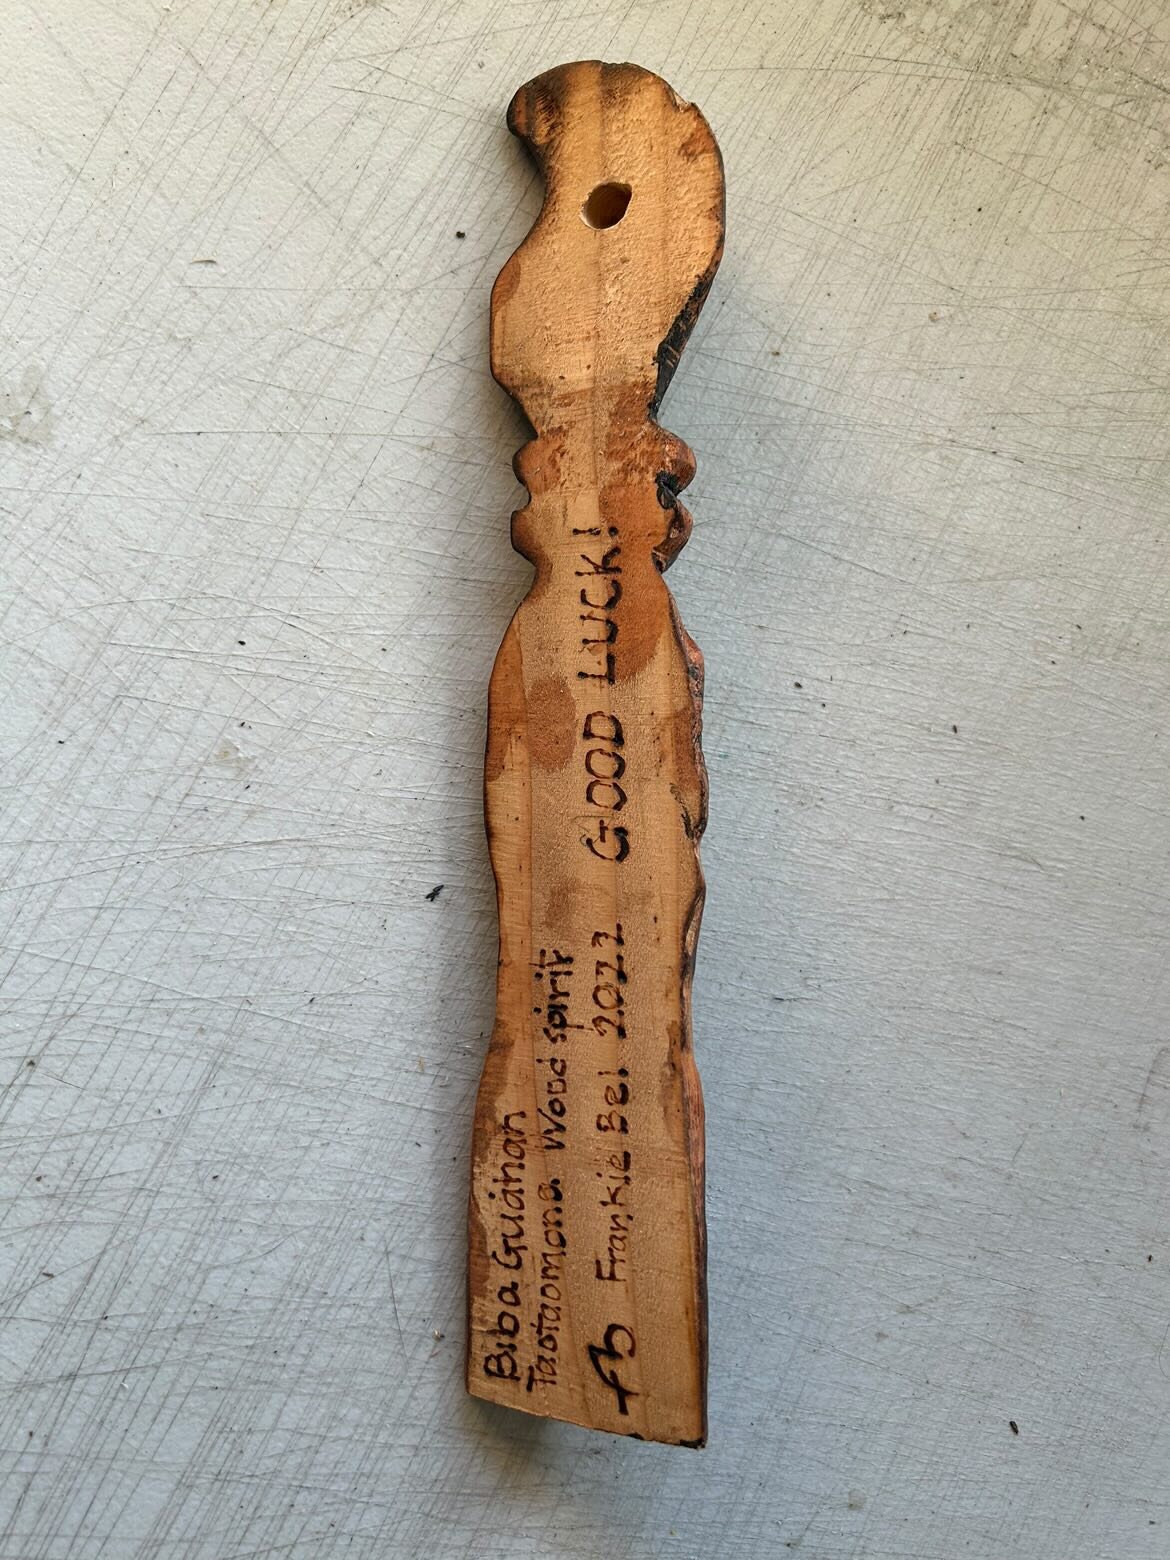 Biba Guåhan
Taotaomona Wood spirit
fb Frankie Bel 2022 GOOD LUCK!